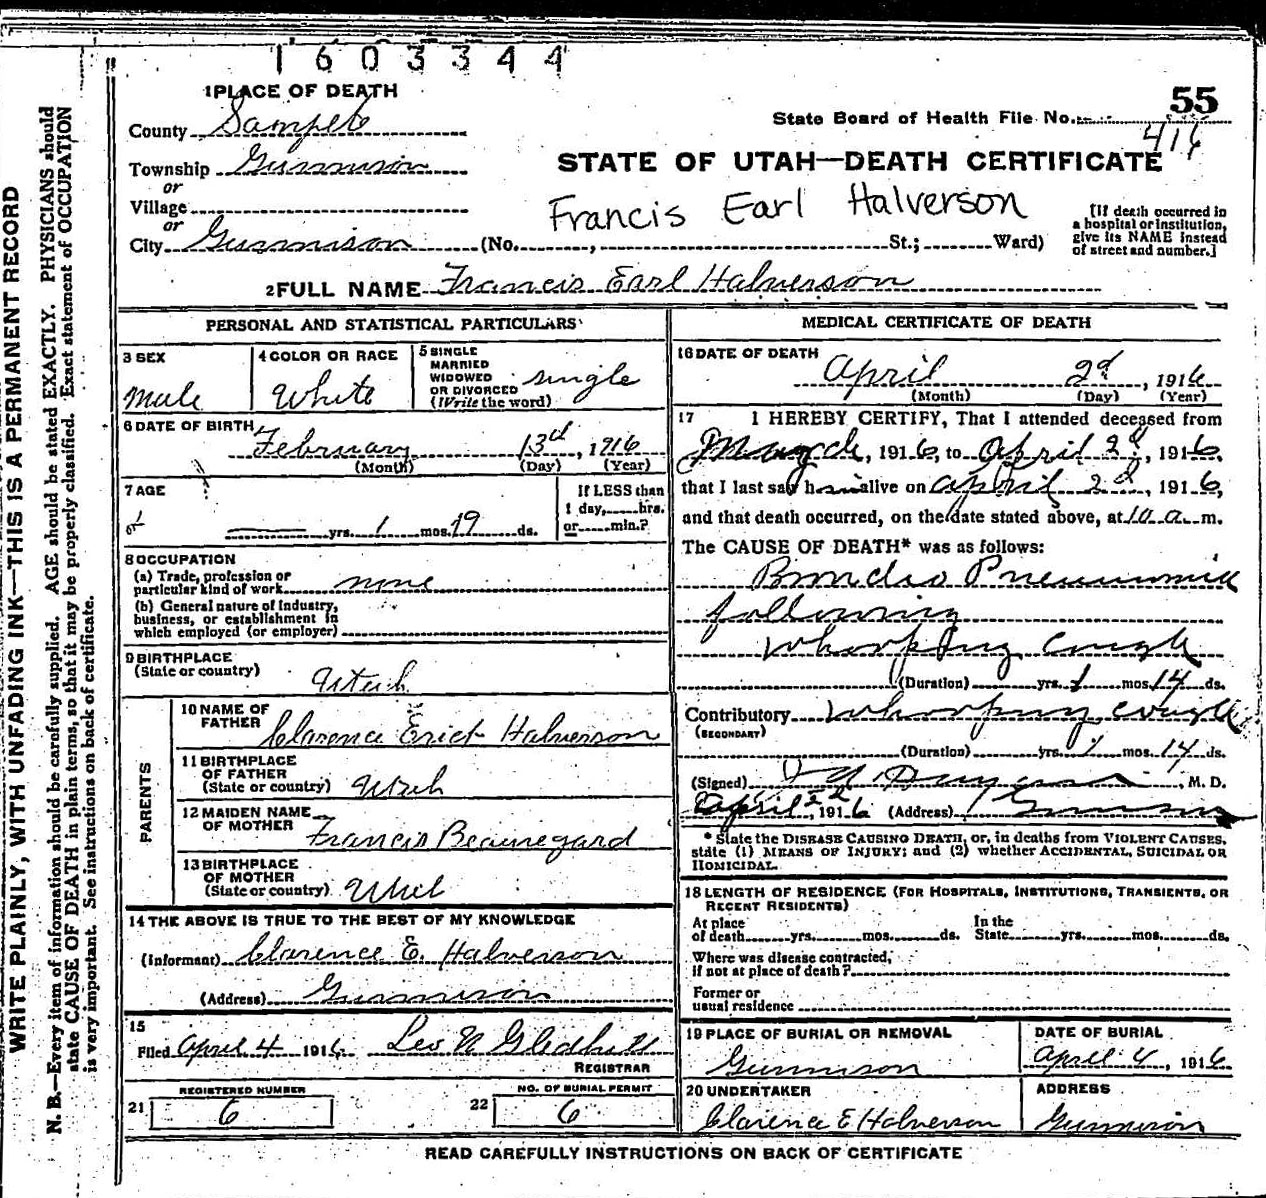 1603344
1 PLACE OF DEATH
55
State Board of Health File No.
416
County Sanpete
Township Gunnison
or
Village
or
City Gunnison (No. , St.; Ward)
STATE OF UTAH—DEATH CERTIFICATE
Francis Earl Halverson
[If death occurred in
a hospital or institution,
give its NAME instead
of street and number.]
2 FULL NAME Francis Earl Halverson
PERSONAL AND STATISTICAL PARTICULARS
3 SEX
Male
4 COLOR OR RACE
White
5 SINGLE
MARRIED
WIDOWED
OR DIVORCED
(Write the word)
single
6 DATE OF BIRTH
February 13d, 1916
(Month) (Day) (Year)
7 AGE
yrs. 1 mos. 19 ds.
If LESS than
1 day, hrs.
or min.?
8 OCCUPATION
(a) Trade, profession or
particular kind of work none
(b) General nature of industry,
business, or establishment in
which employed (or employer)
9 BIRTHPLACE
(State or country)
Utah
PARENTS
10 NAME OF
FATHER
Clarence Erick Halverson
11 BIRTHPLACE
OF FATHER
(State or country) Utah
12 MAIDEN NAME
OF MOTHER
Francis Beauregard
13 BIRTHPLACE
OF MOTHER
(State or country) Utah
14 THE ABOVE IS TRUE TO THE BEST OF MY KNOWLEDGE
(Informant) Clarence E. Halverson
(Address) Gunnison
15
Filed April 4 1916 Leo N Gledhill
REGISTRAR
REGISTERED NUMBER
21 6
NO. OF BURIAL PERMIT
22 6
MEDICAL CERTIFICATE OF DEATH
16 DATE OF DEATH
April 2d, 1916
(Month) (Day) (Year)
17 I HEREBY CERTIFY, That I attended deceased from
March, 1916, to April 2d, 1916,
that I last saw him alive on April 2d, 1916,
and that death occurred, on the date stated above, at 10 a m.
The CAUSE OF DEATH* was as follows:
Broncho Pneumonia
following
whooping cough
(Duration) yrs. 1 mos. 14 ds.
Contributory Whooping cough
(SECONDARY)
(Duration) yrs. 1 mos. 14 ds.
(Signed) , M. D.
April 2d, 1916 (Address) Gunnison
* State the DISEASE CAUSING DEATH, or, in deaths from VIOLENT CAUSES,
state (1) MEANS OF INJURY; and (2) whether ACCIDENTAL, SUICIDAL OR
HOMICIDAL.
18 LENGTH OF RESIDENCE (FOR HOSPITALS, INSTITUTIONS, TRANSIENTS, OR
RECENT RESIDENTS)
At place
of death yrs. mos. ds.
In the
State yrs. mos. ds.
Where was disease contracted,
if not at place of death?
Former or
usual residence
19 PLACE OF BURIAL OR REMOVAL
Gunnison
DATE OF BURIAL
April 4, 1916
20 UNDERTAKER
Clarence E Halverson
ADDRESS
Gunnison
READ CAREFULLY INSTRUCTIONS ON BACK OF CERTIFICATE
WRITE PLAINLY, WITH UNFADING INK—THIS IS A PERMANENT RECORD
N. B.—Every item of information should be carefully supplied. AGE should be stated EXACTLY. PHYSICIANS should
state CAUSE OF DEATH in plain terms, so that it may be properly classified. Exact statement of OCCUPATION
is very important. See instructions on back of certificate.